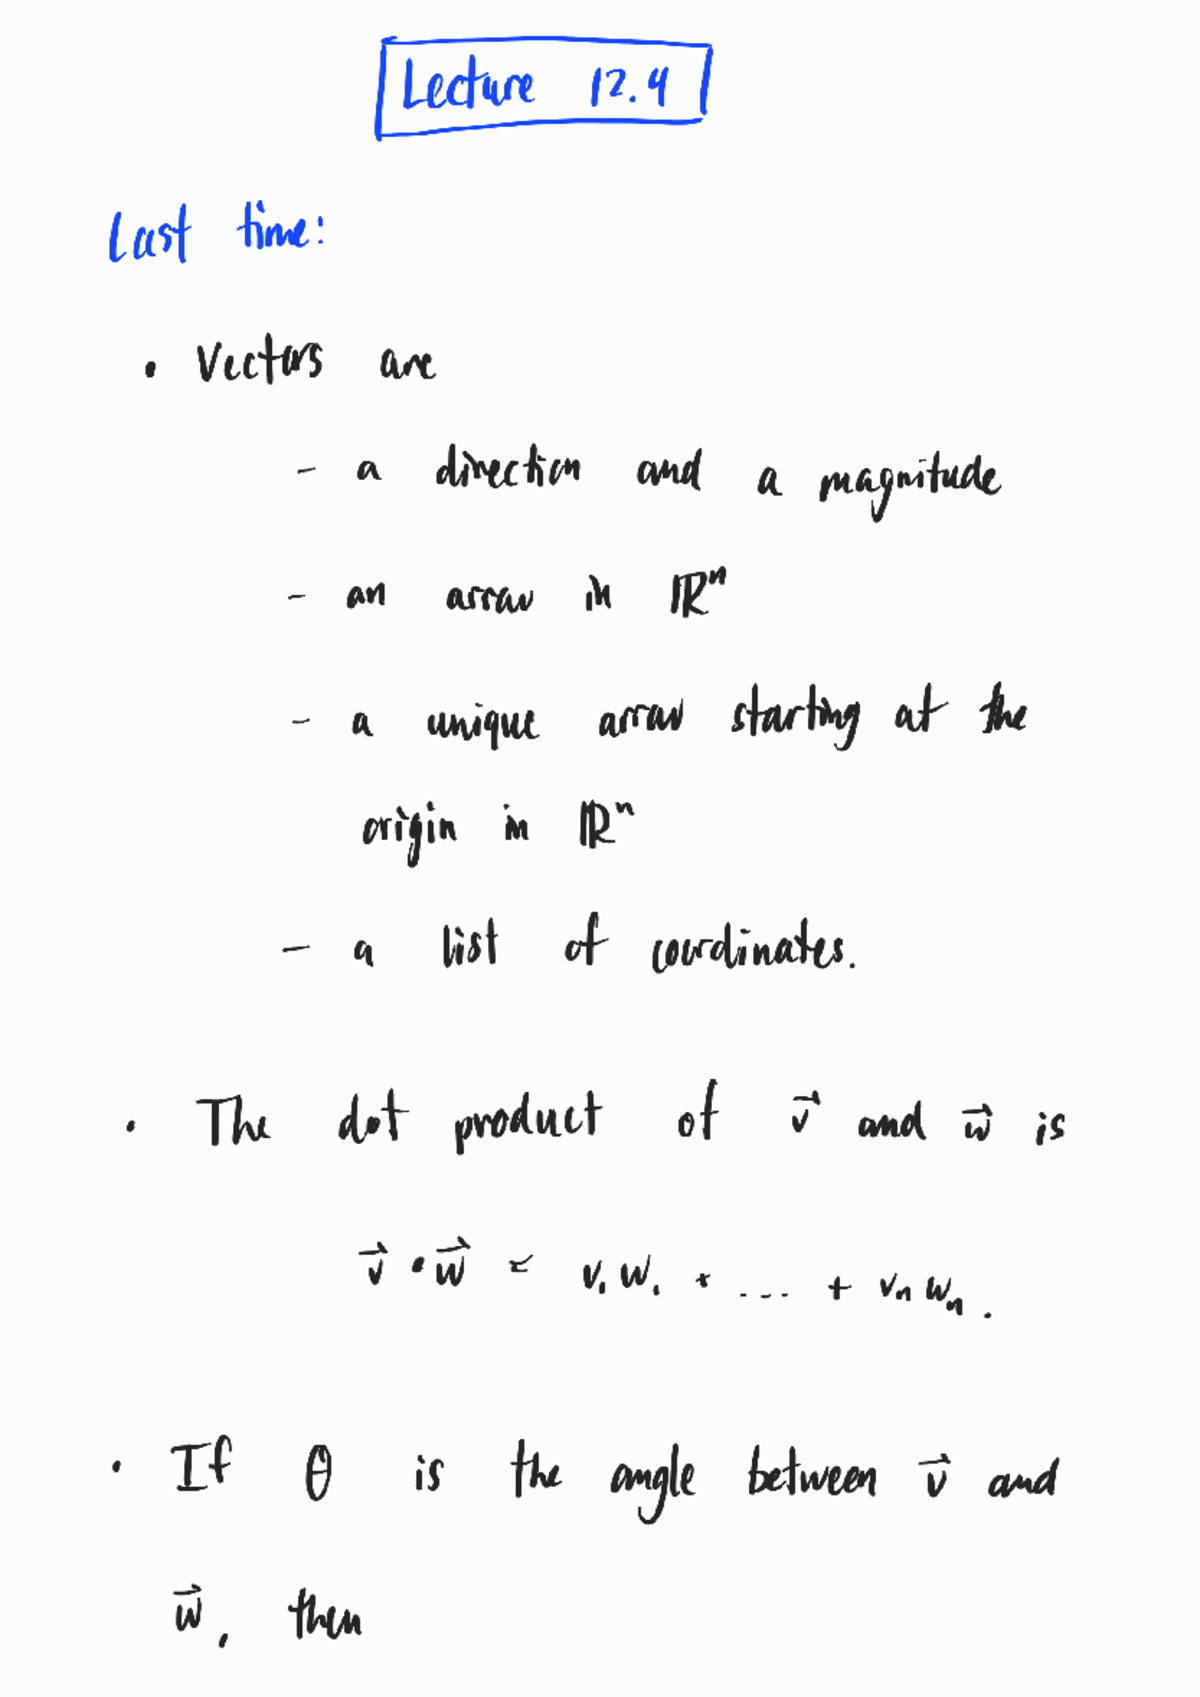 Lecture 12.4
Last time:
• Vectors are
- a direction and a magnitude
- an arrow in ℝⁿ
- a unique arrow starting at the
origin in ℝⁿ
- a list of coordinates.
• The dot product of v⃗ and w⃗ is
v⃗ • w⃗ = v₁w₁ + ... + vₙwₙ.
• If θ is the angle between v⃗ and
w⃗, then